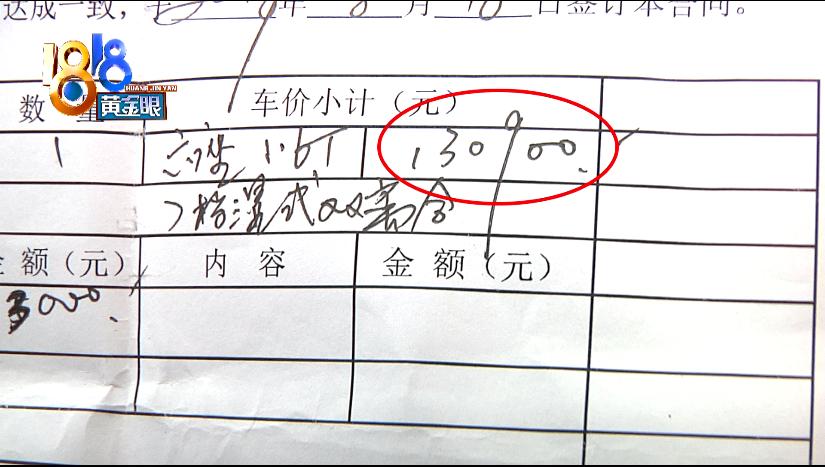 达成一致，于 年 8 月 18 日签订本合同。
1818
HUANG JIN YAN
黄金眼
数 量 车价小计（元）
1 1.6T 130900
7档湿式双离合
金 额（元） 内 容 金 额（元）
3000